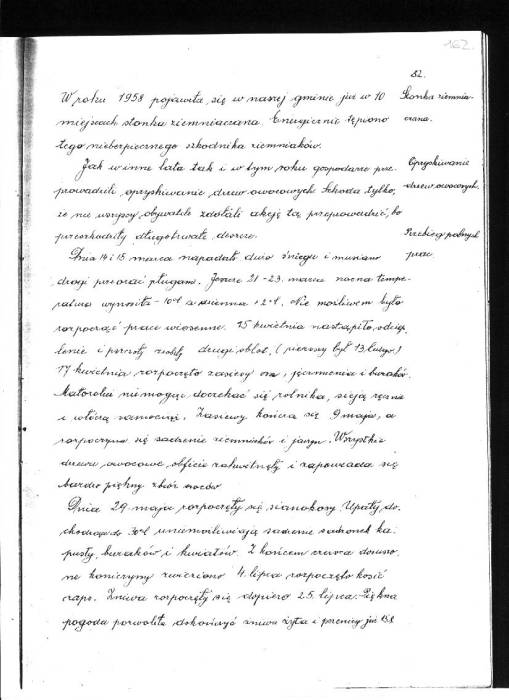 162
82.
W roku 1958 pojawiła się w naszej gminie już w 10
miejscach stonka ziemniaczana. Energicznie tępiono
tego niebezpiecznego szkodnika ziemniaków.
Stonka ziemnia-
czana.
Jak w inne lata tak i w tym roku gospodarze prze-
prowadzili opryskiwanie drzew owocowych. Szkoda tylko,
że nie wszyscy obywatele zdołali akcję tą przeprowadzić, bo
przeszkadzały długotrwałe deszcze.
Opryskiwanie
drzew owocowych.
Dnia 14 i 15 marca napadało dużo śniegu i musiano
drogi przeorać pługami. Jeszcze 21-23. marca nocna tempe-
ratura wynosiła -10°C a dzienna +2°C. Nie możliwem było
rozpocząć prace wiosenne. 15 kwietnia nastąpiło ociep-
lenie i pszczoły zrobiły drugi oblot. (pierwszy był 13 lutego)
17 kwietnia rozpoczęto zasiewy owsa, jęczmienia i buraków.
Małorolni nie mogąc doczekać się rolnika, sieją ręcznie
i włóczą namocniej. Zasiewy kończą się 9 maja, a
rozpoczyna się sadzenie ziemniaków i jarzyn. Wszystkie
drzewa owocowe obficie zakwitnęły i zapowiada się
bardzo piękny zbiór owoców
Przebieg polnych
prac.
Dnia 29 maja rozpoczęły się sianokosy. Upały do-
chodzące do 30°C uniemożliwiają sadzenie sadzonek ka-
pusty, buraków i kwiatów. Z końcem czerwca dosuszo-
ne koniczyny zwieziono 4. lipca rozpoczęto kosić
rzepę. Żniwa rozpoczęły się dopiero 25. lipca. Piękna
pogoda pozwoliła dokończyć żniwa żyta i pszenicy już